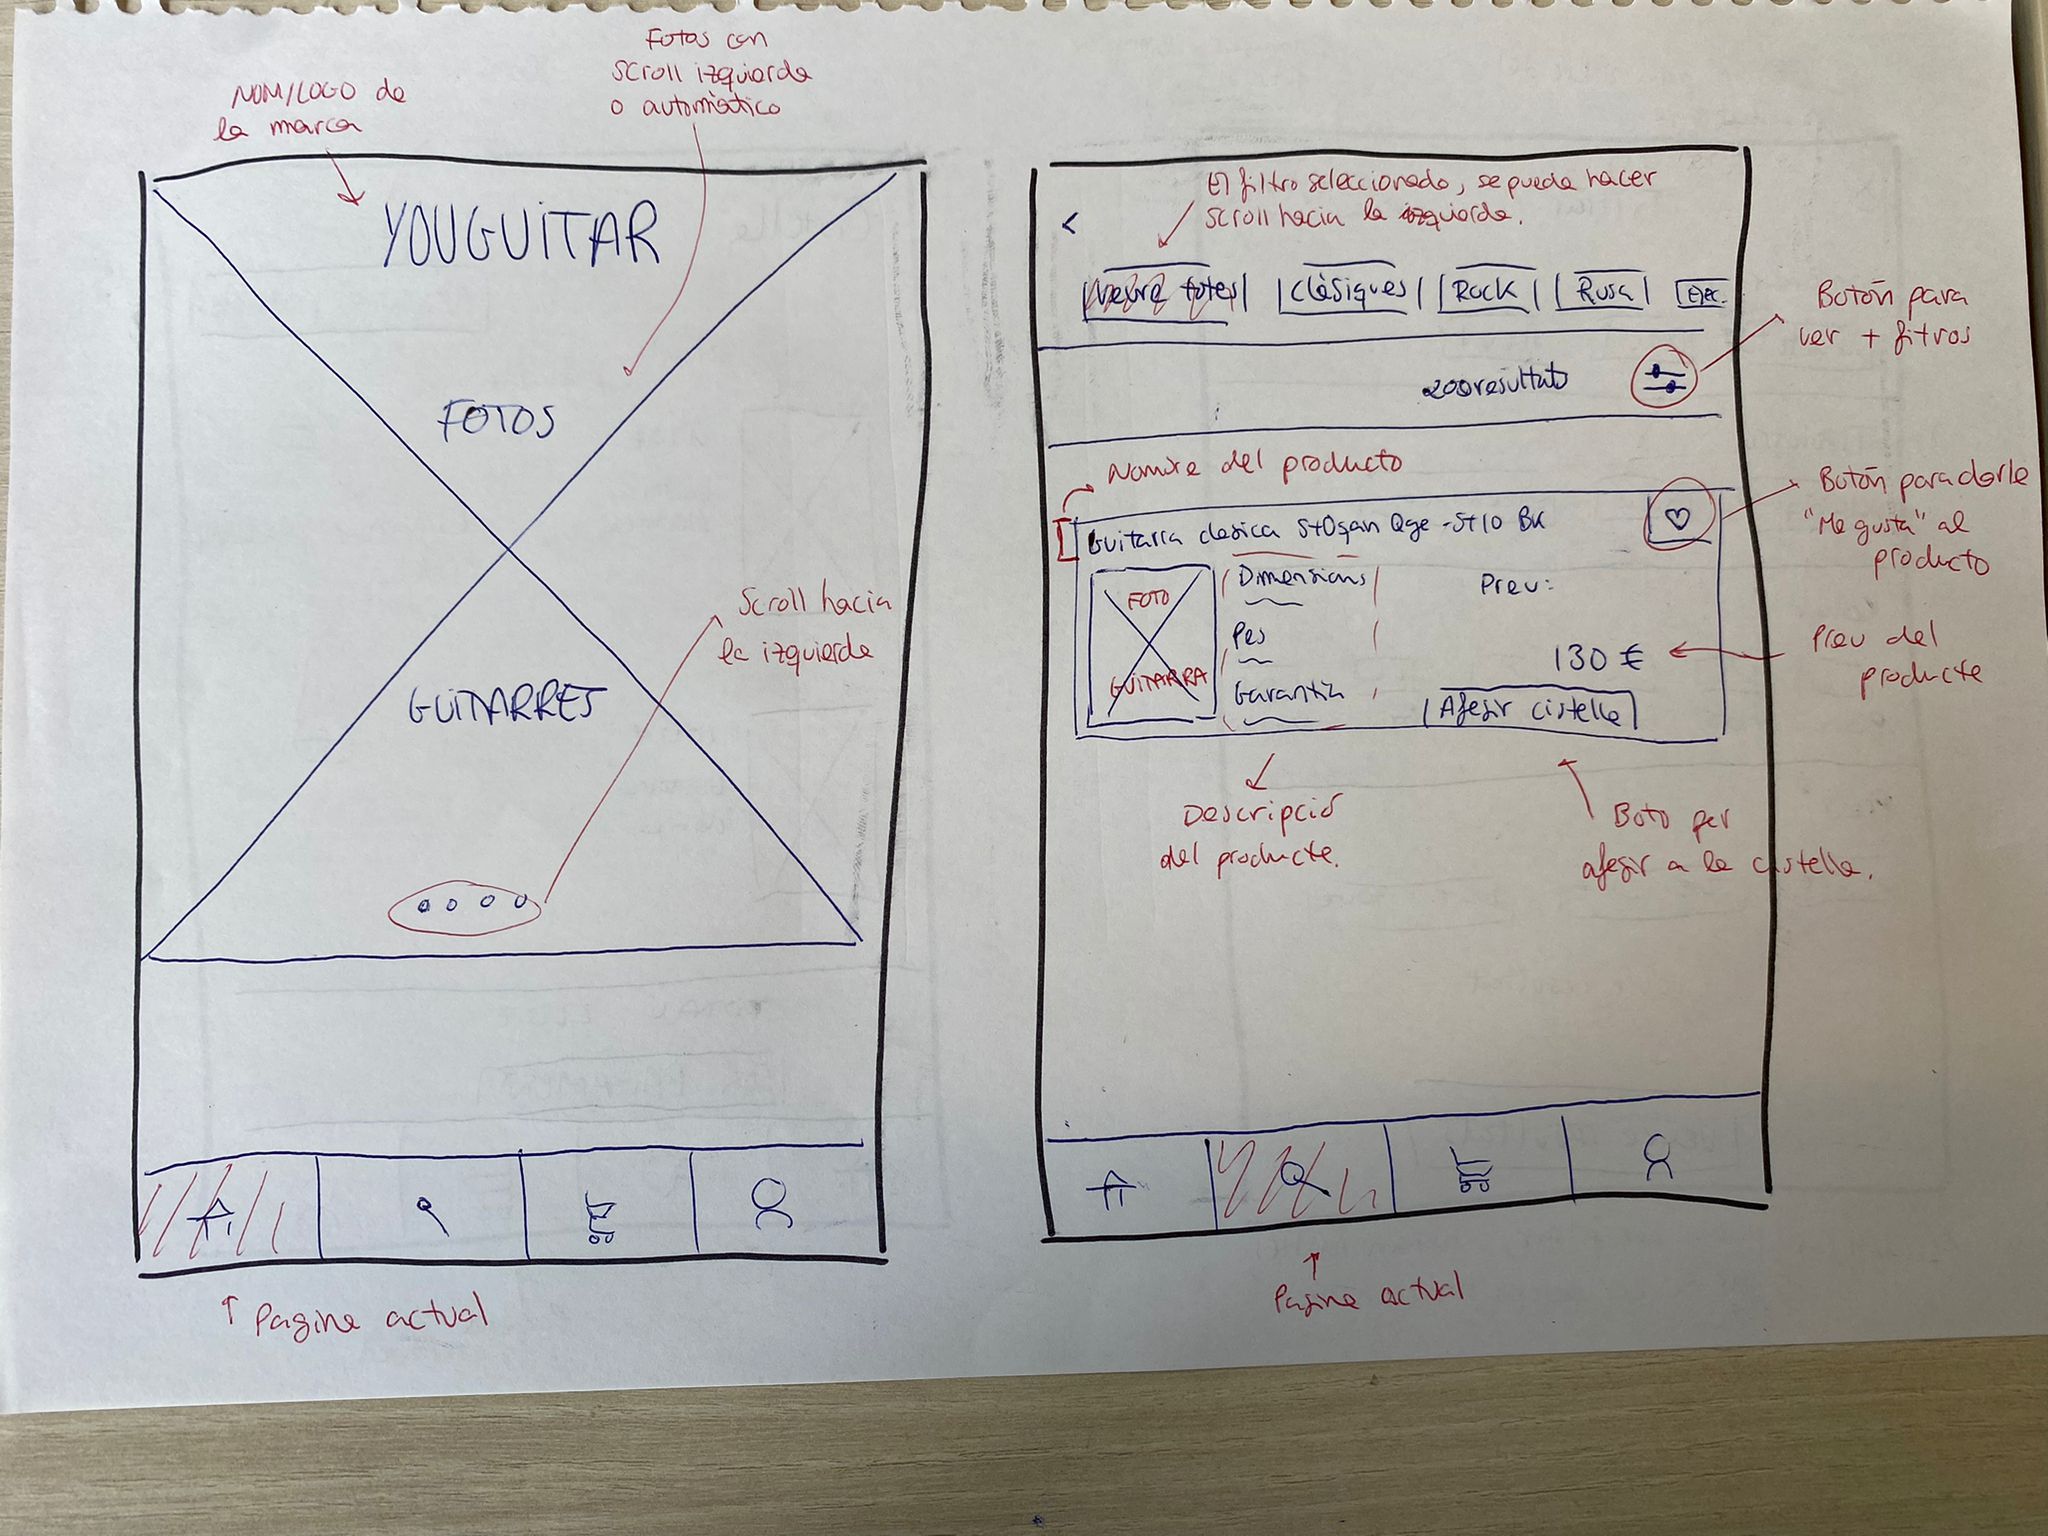 NOM/LOGO de
la marca
Fotos con
scroll izquierda
o automático
YOUGUITAR
FOTOS
GUITARRES
Scroll hacia
la izquierda
↑ Pagina actual
El filtro seleccionado, se pueda hacer
scroll hacia la izquierda.
<
Veure totes Clàsiques Rock Rosa
200 resultats
Botón para
ver + fitros
Nombre del producto
Guitarra clasica -ST10 BK
♡
Botón para darle
"Me gusta" al
producto
FOTO
GUITARRA
Dimensions
Pes
Garantia
Preu:
130 €
Afegir cistella
Preu del
producte
Descripció
del producte.
Boto per
afegir a la cistella.
↑
Pagina actual